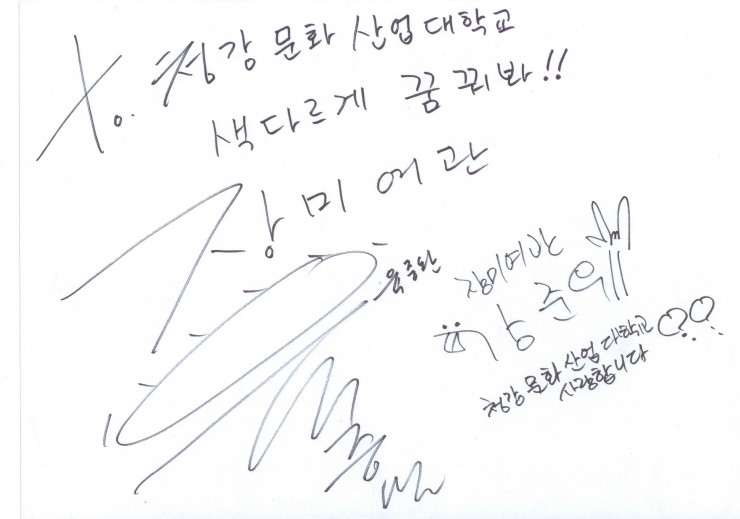 To. 청강 문화 산업 대학교
색다르게 꿈 꿔봐!!
장미여관
육중완
장미여관
강준우
청강 문화 산업 대학교
사랑합니다